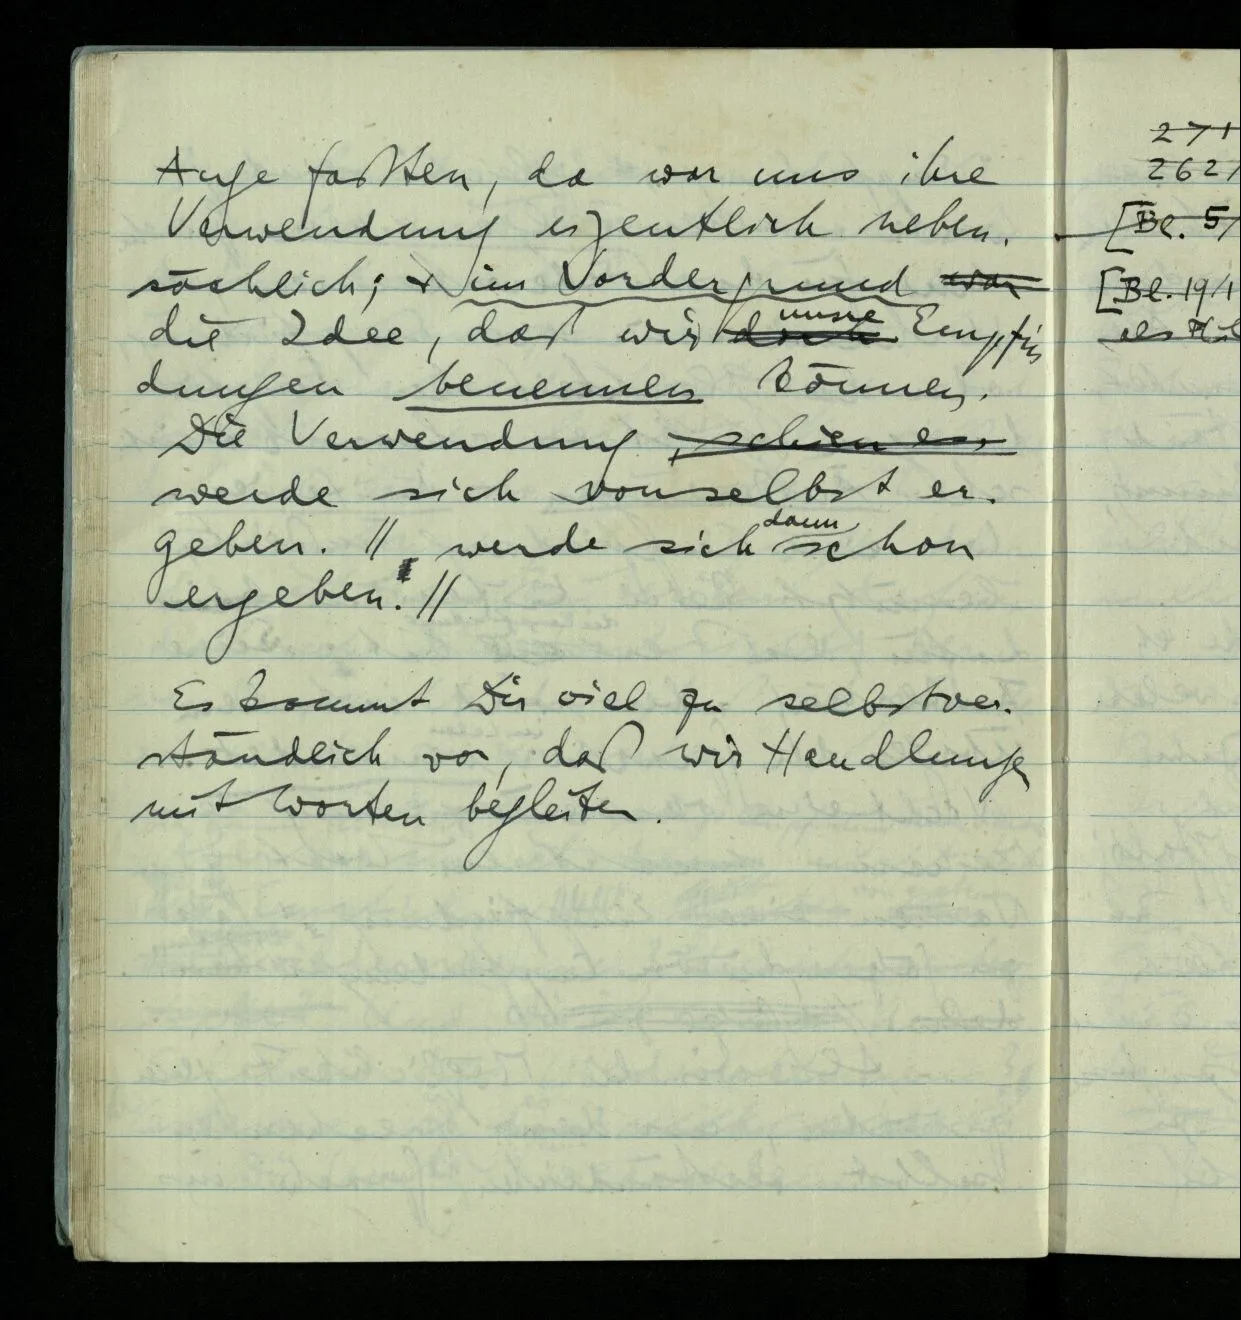 Auge faßten, da war uns ihre
Verwendung eigentlich neben-
sächlich; & im Vordergrund war
die Idee, daß wir doch unsre Empfin
dungen benennen können.
Die Verwendung, schien es,
werde sich vonselbst er-
geben. // werde sich dann schon
ergeben. //
Es kommt Dir viel zu selbstver-
ständlich vor, daß wir Handlungen
mit Worten begleiten.
271
262/
[Bl. 5/
[Bl. 19/1